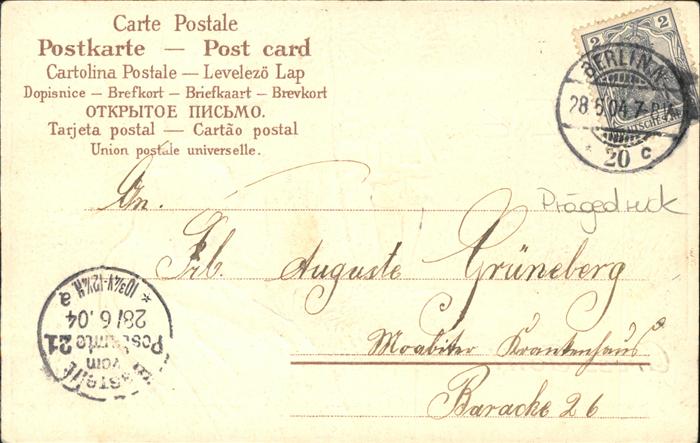 Carte Postale
Postkarte — Post card
Cartolina Postale — Levelezö Lap
Dopisnice — Brefkort — Briefkaart — Brevkort
ОТКРЫТОЕ ПИСЬМО.
Tarjeta postal — Cartão postal
Union postale universelle.
2 2
BERLIN.N.
28.6.04.7-
* 20 c
Prägedruck
Frl. Auguste Grüneberg
Moabiter Krankenhaus
Baracke 26
vom
Postamte 21
28/6.04